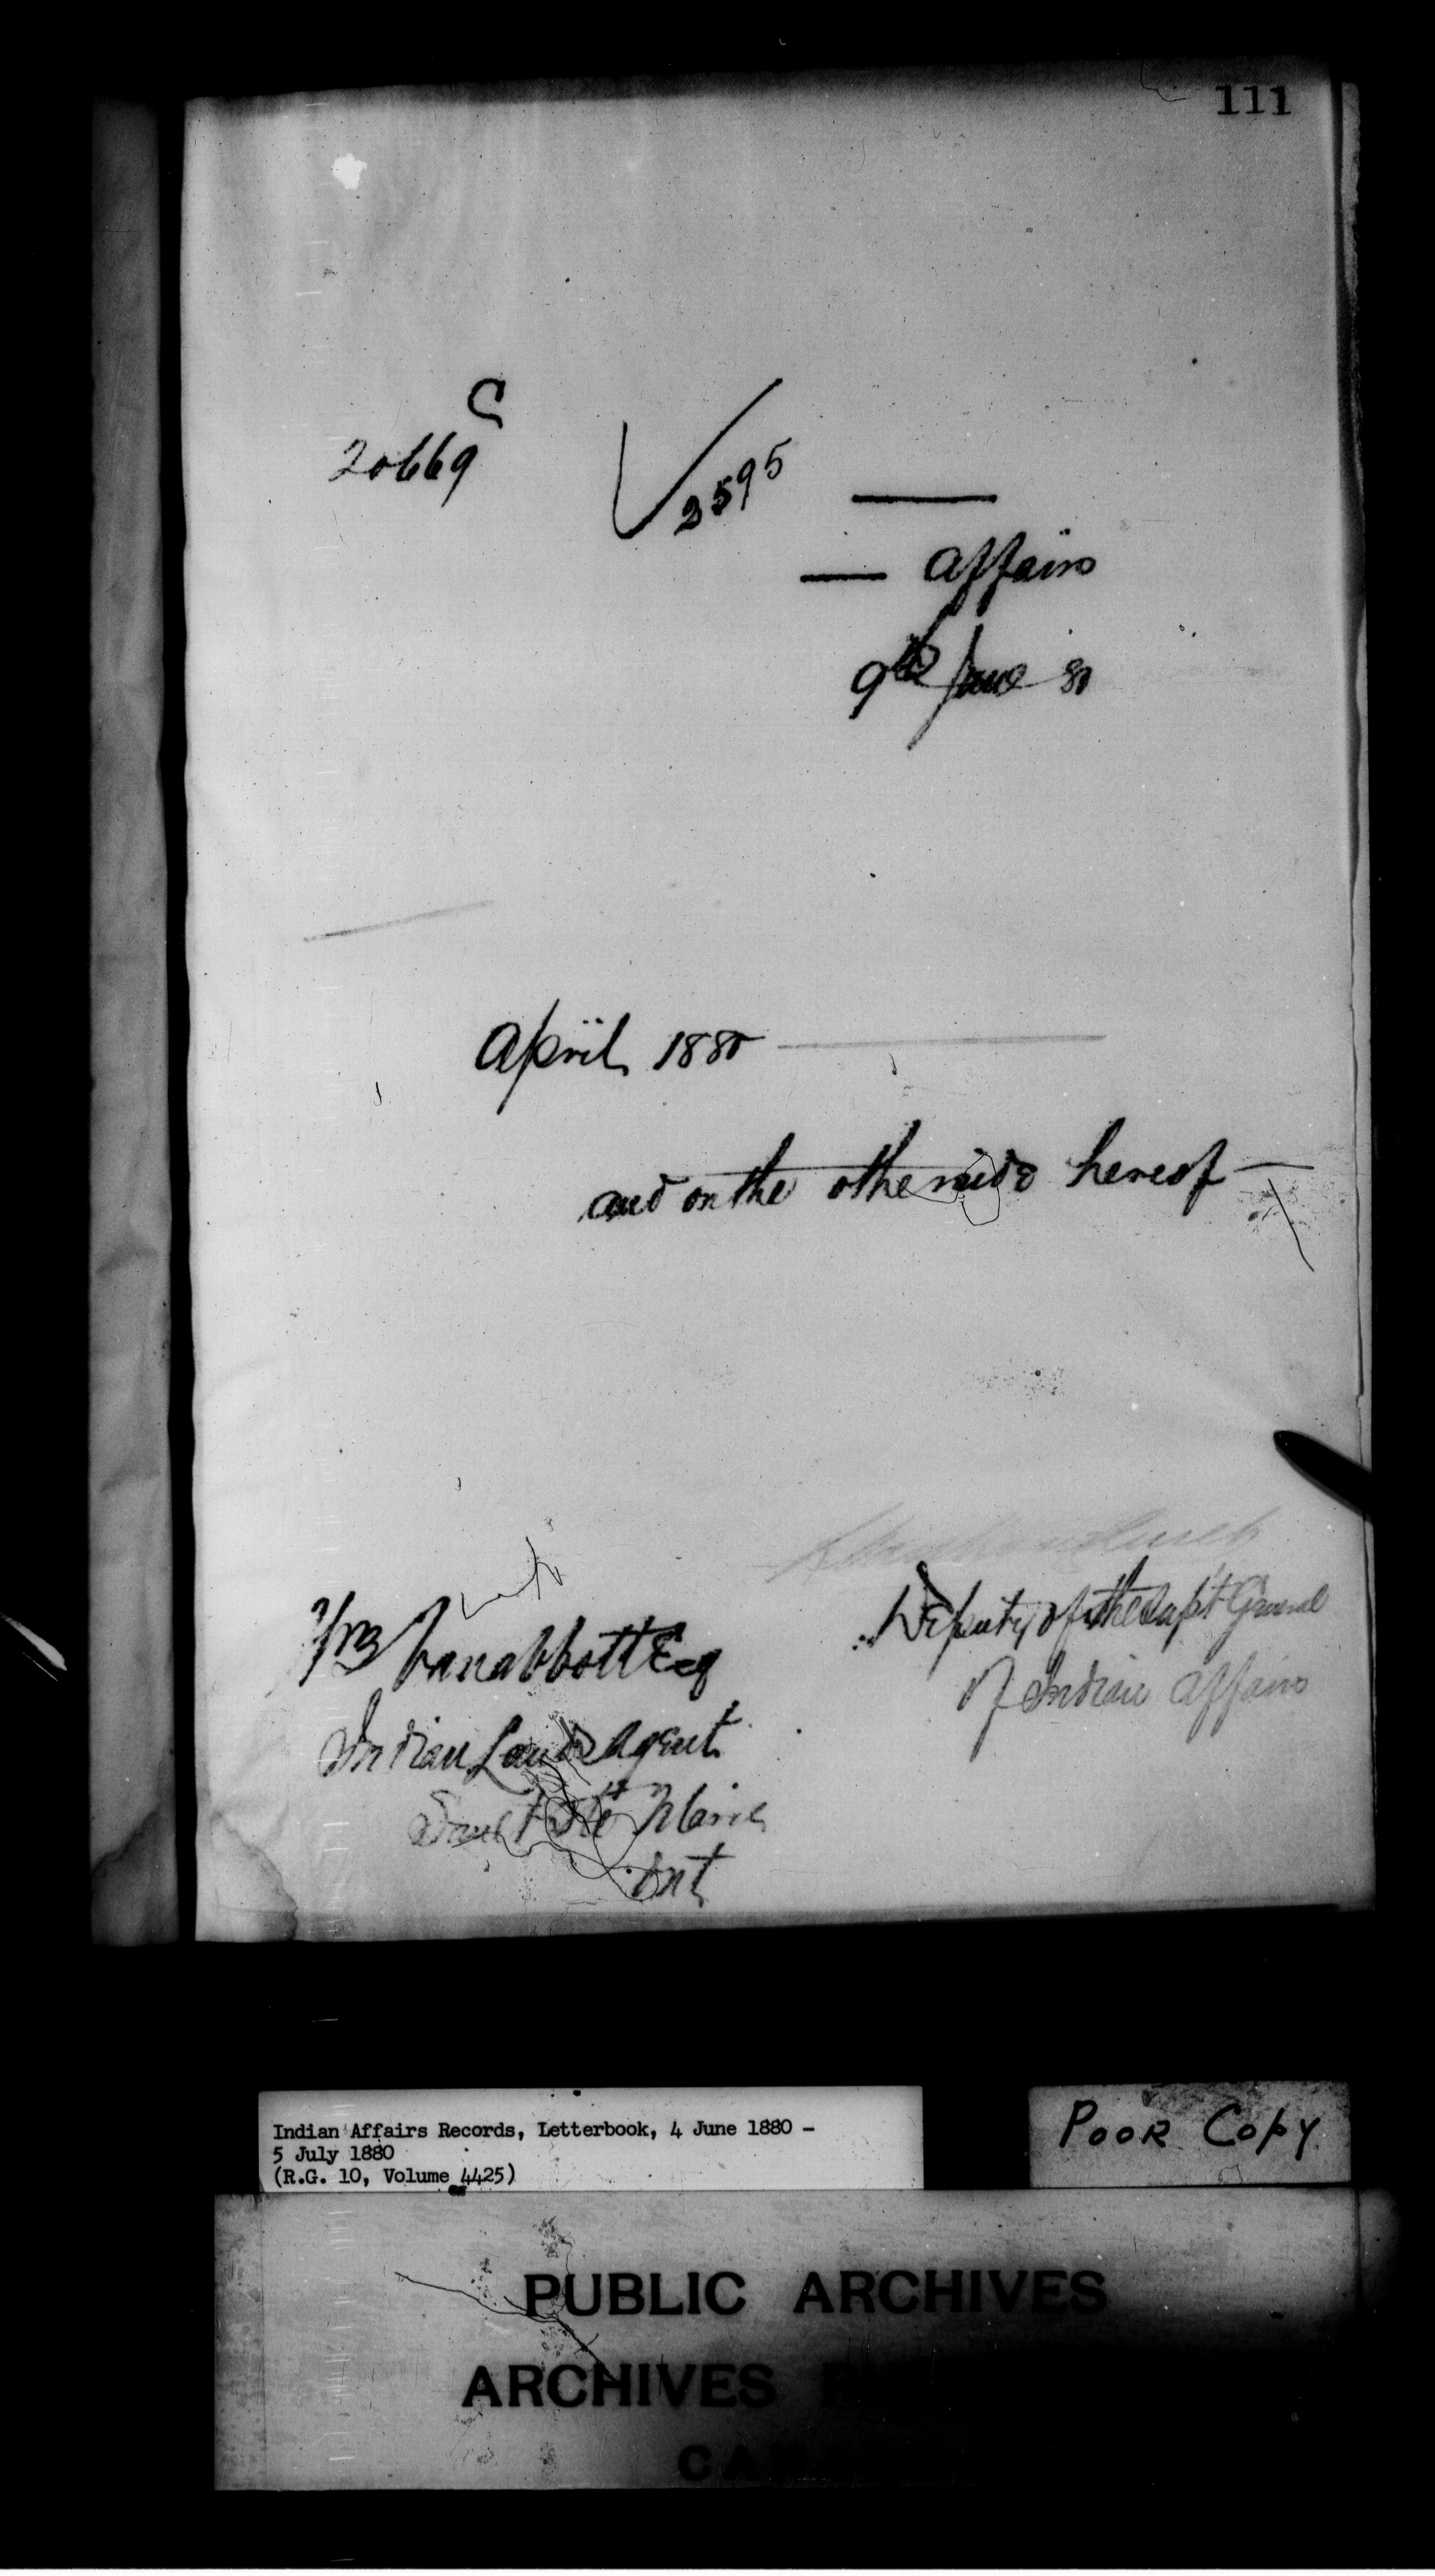 111
C
20669
2595
Affairs
9th June 80
April 1880
and on the other side hereof
Wm Vanabbott Esq
Indian Land Agent
Sault Ste Marie
Ont
Deputy of the Supt General
of Indian Affairs
Indian Affairs Records, Letterbook, 4 June 1880 -
5 July 1880
(R.G. 10, Volume 4425)
POOR COPY
PUBLIC ARCHIVES
ARCHIVES